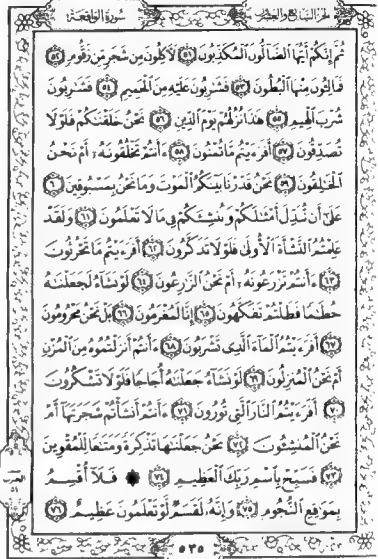 الجزء السابع والعشرون سورة الواقعة
ثُمَّ إِنَّكُمْ أَيُّهَا الضَّالُّونَ الْمُكَذِّبُونَ ٥١ لَآكِلُونَ مِن شَجَرٍ مِّن زَقُّومٍ ٥٢
فَمَالِئُونَ مِنْهَا الْبُطُونَ ٥٣ فَشَٰرِبُونَ عَلَيْهِ مِنَ الْحَمِيمِ ٥٤ فَشَٰرِبُونَ
شُرْبَ الْهِيمِ ٥٥ هَٰذَا نُزُلُهُمْ يَوْمَ الدِّينِ ٥٦ نَحْنُ خَلَقْنَٰكُمْ فَلَوْلَا
تُصَدِّقُونَ ٥٧ أَفَرَءَيْتُم مَّا تُمْنُونَ ٥٨ ءَأَنتُمْ تَخْلُقُونَهُۥٓ أَمْ نَحْنُ
الْخَٰلِقُونَ ٥٩ نَحْنُ قَدَّرْنَا بَيْنَكُمُ الْمَوْتَ وَمَا نَحْنُ بِمَسْبُوقِينَ ٦٠
عَلَىٰٓ أَن نُّبَدِّلَ أَمْثَٰلَكُمْ وَنُنشِئَكُمْ فِى مَا لَا تَعْلَمُونَ ٦١ وَلَقَدْ
عَلِمْتُمُ النَّشْأَةَ الْأُولَىٰ فَلَوْلَا تَذَكَّرُونَ ٦٢ أَفَرَءَيْتُم مَّا تَحْرُثُونَ
٦٣ ءَأَنتُمْ تَزْرَعُونَهُۥٓ أَمْ نَحْنُ الزَّٰرِعُونَ ٦٤ لَوْ نَشَآءُ لَجَعَلْنَٰهُ
حُطَٰمًا فَظَلْتُمْ تَفَكَّهُونَ ٦٥ إِنَّا لَمُغْرَمُونَ ٦٦ بَلْ نَحْنُ مَحْرُومُونَ
٦٧ أَفَرَءَيْتُمُ الْمَآءَ الَّذِى تَشْرَبُونَ ٦٨ ءَأَنتُمْ أَنزَلْتُمُوهُ مِنَ الْمُزْنِ
أَمْ نَحْنُ الْمُنزِلُونَ ٦٩ لَوْ نَشَآءُ جَعَلْنَٰهُ أُجَاجًا فَلَوْلَا تَشْكُرُونَ
٧٠ أَفَرَءَيْتُمُ النَّارَ الَّتِى تُورُونَ ٧١ ءَأَنتُمْ أَنشَأْتُمْ شَجَرَتَهَآ أَمْ
نَحْنُ الْمُنشِئُونَ ٧٢ نَحْنُ جَعَلْنَٰهَا تَذْكِرَةً وَمَتَٰعًا لِّلْمُقْوِينَ
٧٣ فَسَبِّحْ بِاسْمِ رَبِّكَ الْعَظِيمِ ٧٤ ۞ فَلَآ أُقْسِمُ
بِمَوَٰقِعِ النُّجُومِ ٧٥ وَإِنَّهُۥ لَقَسَمٌ لَّوْ تَعْلَمُونَ عَظِيمٌ ٧٦
الحزب
٥٣٥